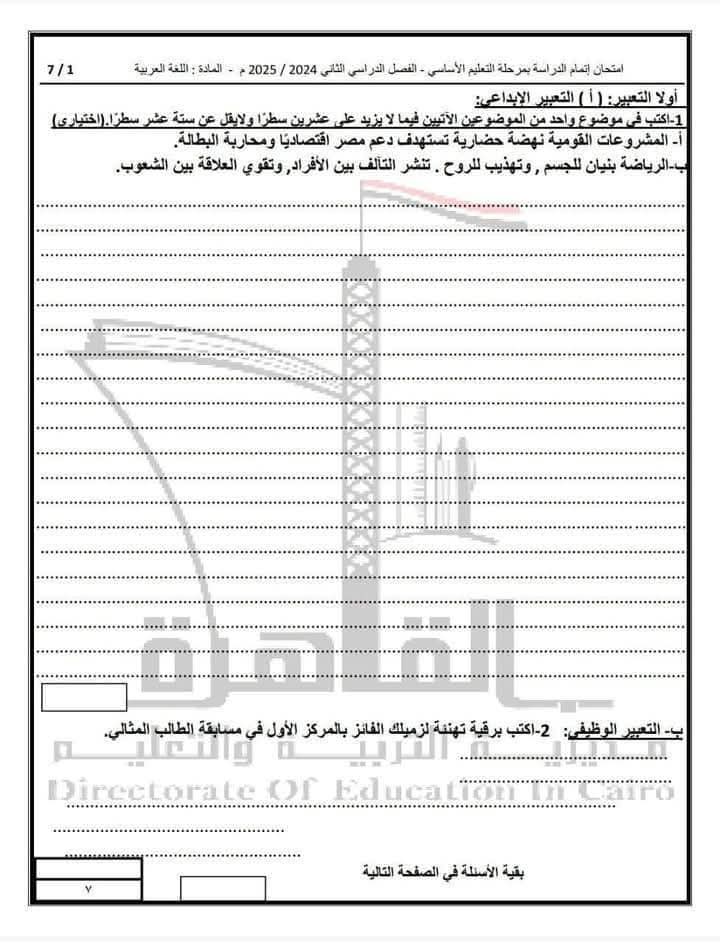 امتحان إتمام الدراسة بمرحلة التعليم الأساسي - الفصل الدراسي الثاني 2024 / 2025 م - المادة : اللغة العربية 1 / 7
أولا التعبير: ( أ ) التعبير الإبداعي:
1-اكتب في موضوع واحد من الموضوعين الآتيين فيما لا يزيد على عشرين سطرًا ولايقل عن ستة عشر سطرًا.(اختياري)
أ- المشروعات القومية نهضة حضارية تستهدف دعم مصر اقتصاديًا ومحاربة البطالة.
ب-الرياضة بنيان للجسم , وتهذيب للروح . تنشر التآلف بين الأفراد, وتقوي العلاقة بين الشعوب.
القاهرة
ب- التعبير الوظيفي: 2-اكتب برقية تهنئة لزميلك الفائز بالمركز الأول في مسابقة الطالب المثالي.
مديرية التربية والتعليم
Directorate Of Education In Cairo
بقية الأسئلة في الصفحة التالية
٧